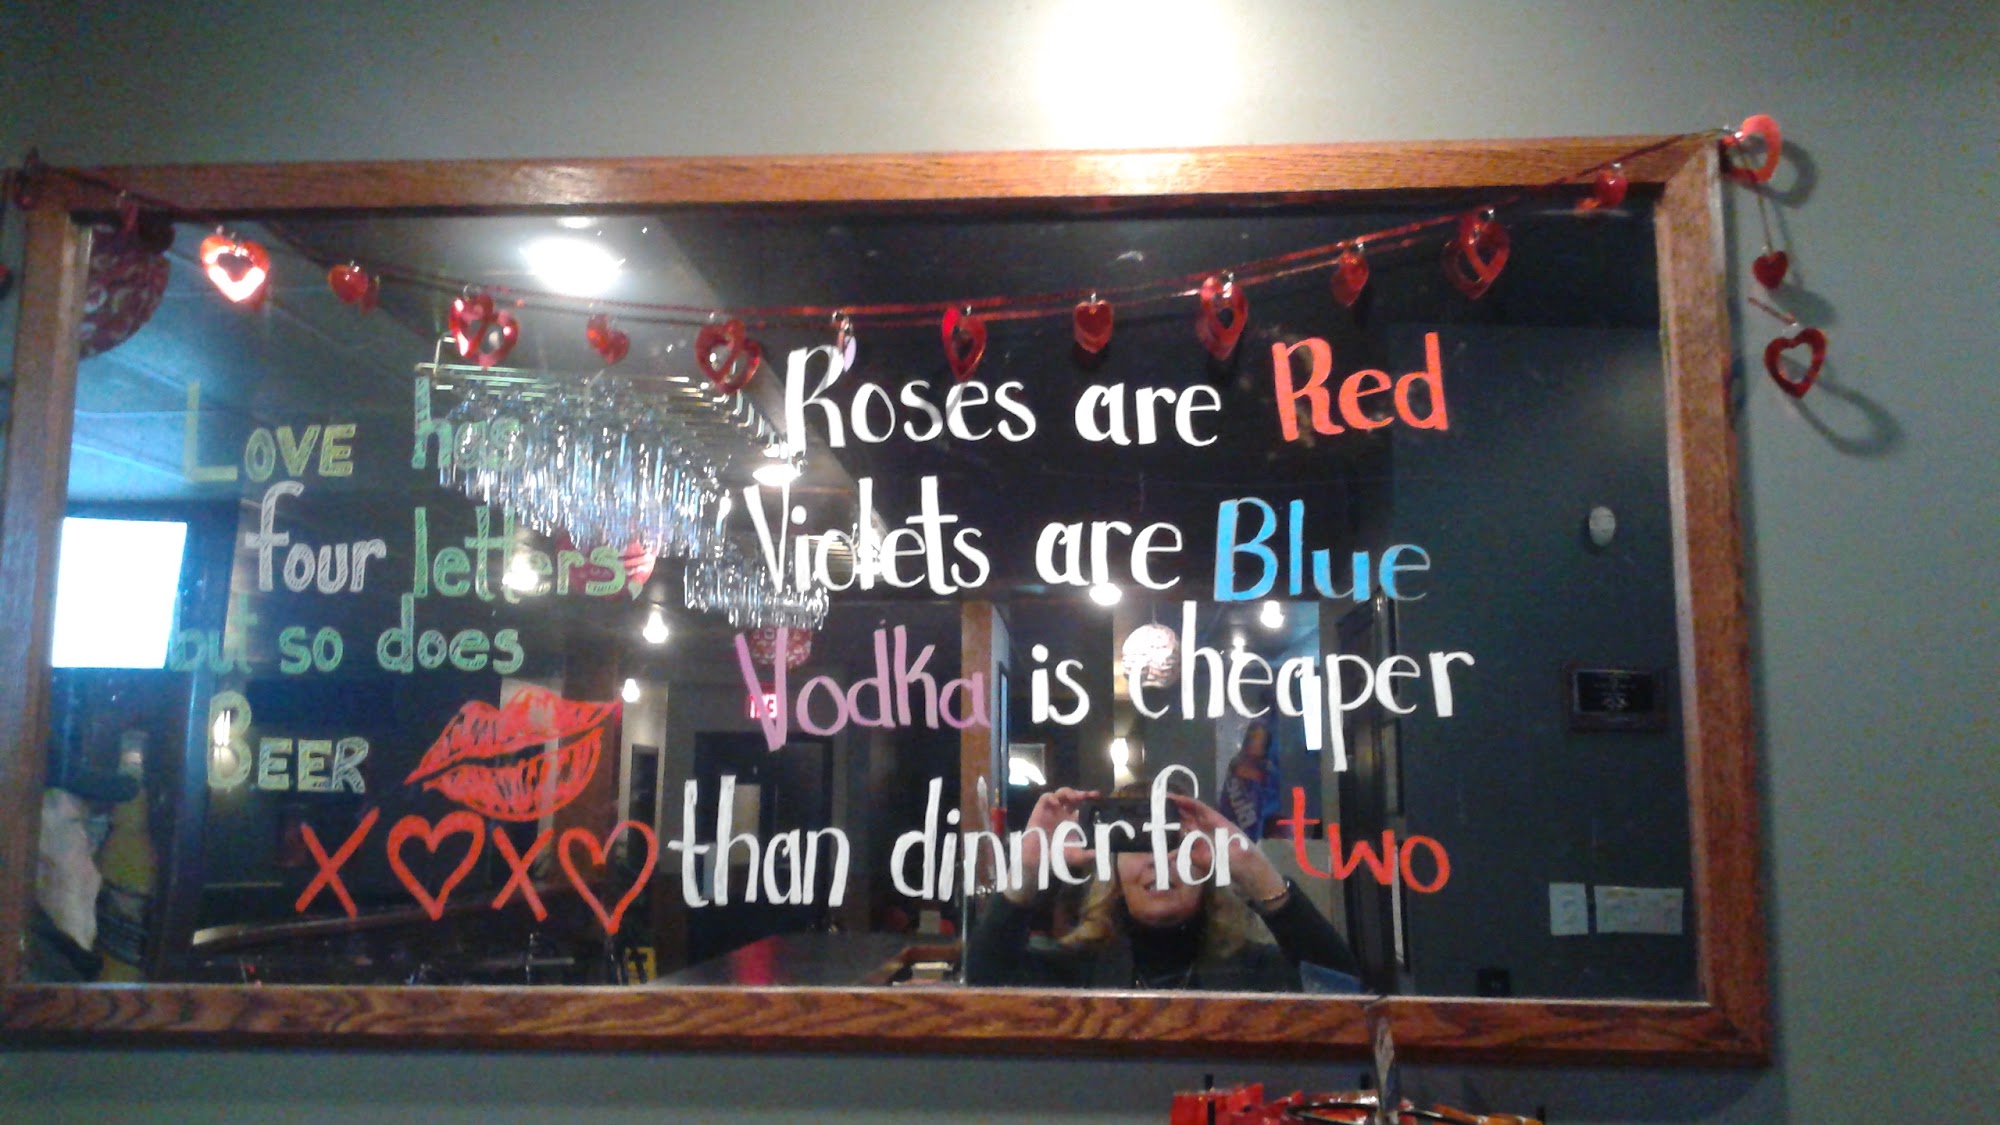 Love has
four letters,
but so does
Beer
XOXO
Roses are Red
Violets are Blue
Vodka is cheaper
than dinner for two